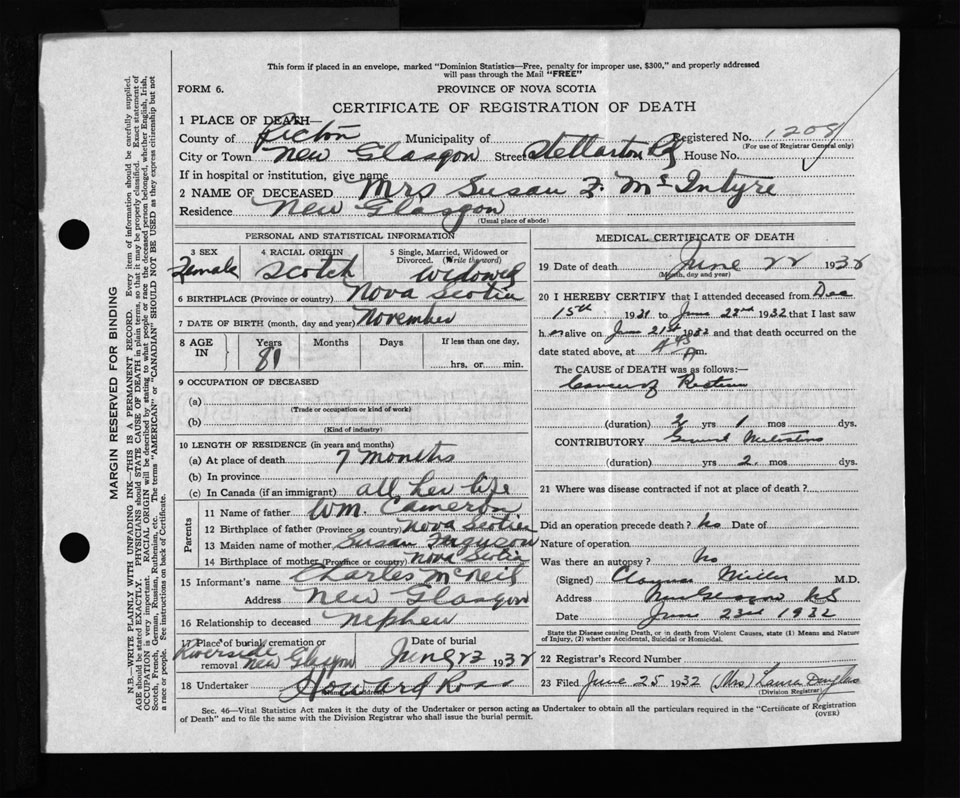 This form if placed in an envelope, marked "Dominion Statistics—Free, penalty for improper use, $300," and properly addressed
will pass through the Mail "FREE"
FORM 6.
PROVINCE OF NOVA SCOTIA
CERTIFICATE OF REGISTRATION OF DEATH
1 PLACE OF DEATH—
County of Pictou Municipality of Registered No. 1208
(For use of Registrar General only)
City or Town New Glasgow Street Stellarton Rd House No.
If in hospital or institution, give name
2 NAME OF DECEASED Mrs Susan F. Mc Intyre
Residence New Glasgow
(Usual place of abode)
PERSONAL AND STATISTICAL INFORMATION
3 SEX Female
4 RACIAL ORIGIN Scotch
5 Single, Married, Widowed or Divorced. (Write the word) Widowed
6 BIRTHPLACE (Province or country) Nova Scotia
7 DATE OF BIRTH (month, day and year) November
8 AGE IN Years 81 Months Days If less than one day, hrs, or min.
9 OCCUPATION OF DECEASED
(a)
(Trade or occupation or kind of work)
(b)
(Kind of industry)
10 LENGTH OF RESIDENCE (in years and months)
(a) At place of death 7 Months
(b) In province
(c) In Canada (if an immigrant) all her life
Parents
11 Name of father Wm. Cameron
12 Birthplace of father (Province or country) Nova Scotia
13 Maiden name of mother Susan Ferguson
14 Birthplace of mother (Province or country) Nova Scotia
15 Informant's name Charles McNeil
Address New Glasgow
16 Relationship to deceased Nephew
17 Place of burial, cremation or removal Riverside New Glasgow
Date of burial June 23 1932
18 Undertaker Howard Ross
(Name and address)
MEDICAL CERTIFICATE OF DEATH
19 Date of death June 22 1932
(Month, day and year)
20 I HEREBY CERTIFY that I attended deceased from Dec
15th 1931 to June 22nd 1932 that I last saw
h er alive on June 21st 1932 and that death occurred on the
date stated above, at m.
The CAUSE of DEATH was as follows:—
Cancer of Rectum
(duration) 2 yrs 1 mos dys.
CONTRIBUTORY General
(duration) yrs 2 mos dys.
21 Where was disease contracted if not at place of death?
Did an operation precede death? No Date of
Nature of operation
Was there an autopsy? No
(Signed) Clarence Miller M.D.
Address New Glasgow NS
Date June 23rd 1932
State the Disease causing Death, or in death from Violent Causes, state (1) Means and Nature
of Injury, (2) whether Accidental, Suicidal or Homicidal.
22 Registrar's Record Number
23 Filed June 25 1932 (Mrs) Laura Douglas
(Division Registrar)
Sec. 46—Vital Statistics Act makes it the duty of the Undertaker or person acting as Undertaker to obtain all the particulars required in the "Certificate of Registration
of Death" and to file the same with the Division Registrar who shall issue the burial permit.
(OVER)
MARGIN RESERVED FOR BINDING
N.B.—WRITE PLAINLY WITH UNFADING INK—THIS IS A PERMANENT RECORD. Every item of information should be carefully supplied.
AGE should be stated EXACTLY. PHYSICIANS should STATE CAUSE OF DEATH in plain terms, so that it may be properly classified. Exact statement of
OCCUPATION is very important. RACIAL ORIGIN will be described by stating to what people or race the deceased person belonged, whether English, Irish,
Scotch, French, German, Russian, Ruthenian, etc. The terms "AMERICAN" or "CANADIAN" SHOULD NOT BE USED as they express citizenship but not
a race or people. See instructions on back of Certificate.